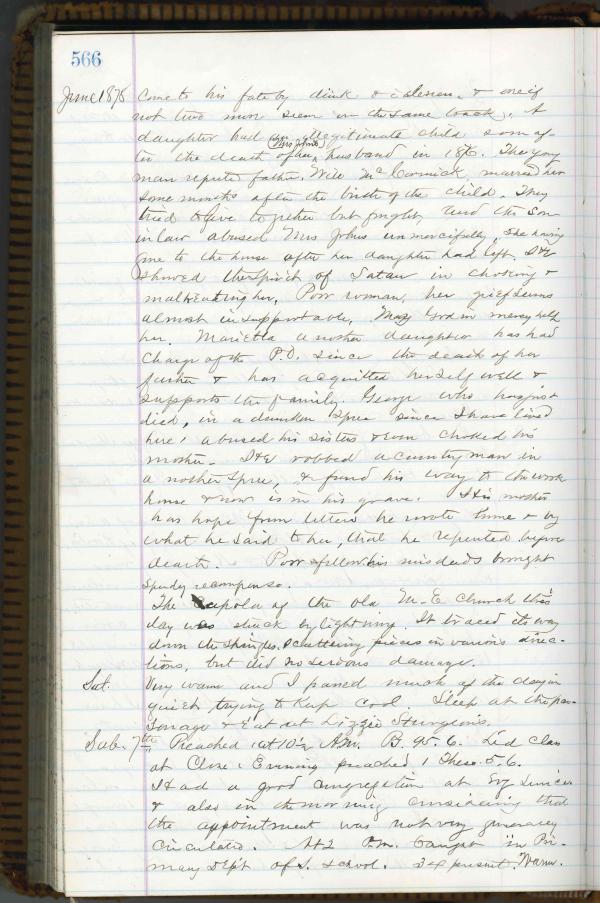 566
June 1878 Come to his fate by drink & idleness. & one if
not two more seem on the same track. A
daughter had an illegitimate child some af-
ter the death of her (Mrs Johns) husband in 1876. The young
man reputed father, Will McCormick, married her
some months after the birth of the child. They
tried to live together but fought, and the son
in law abused Mrs Johns unmercifully, she having
gone to the house after her daughter had left, & He
showed the spirit of Satan in choking &
maltreating her. Poor woman, her grief seems
almost insupportable. May God in mercy help
her. Marietta another daughter has had
charge of the P.O. since the death of her
father & has acquitted herself well &
supports the family. George who has just
died, in a drunken spree since I have lived
here, abused his sisters & even choked his
mother. & He robbed a country man in
another spree, & found his way to the work
house & now is in his grave. His mother
has hope from letters he wrote home & by
what he said to her, that he repented before
death. Poor fellow his misdeeds brought
speedy recompense.
The Cupola of the old M.E Church this
day was struck by lightning. It traced its way
down the shingles scattering pieces in various direc-
tions, but did no serious damage.
Sat. Very warm and I passed much of the day in
quiet trying to keep cool. Sleep at the par-
sonage & Eat at Lizzie Sturgeon's.
Sab. 7th Preached at 10½ A.M. P. 95.6. Led Class
at Close. Evening preached 1 Thess. 5.6.
Had a good congregation at Evg Service
& also in the morning considering that
the appointment was not very generally
circulated. At 2 P.m. taught in Pri-
mary Dep't of S. School. 34 present. Warm.